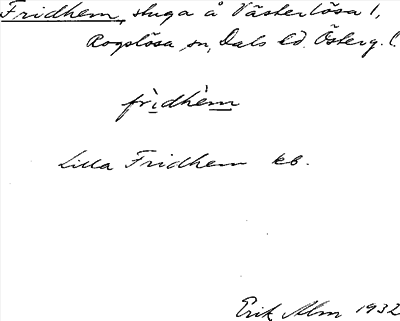 Fridhem, stuga å Västerlösa 1,
Rogslösa sn, Dals hd. Österg. l.
frìdhèm
Lilla Fridhem kb.
Erik Alm 1932